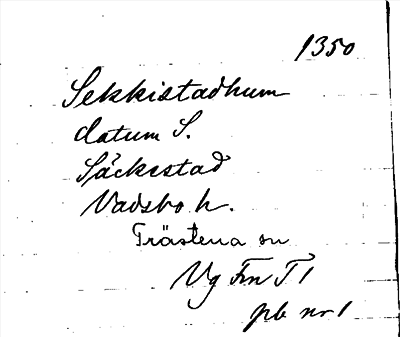 1350
Sekkistadhum
datum S.
Säckestad
Vadsbo h.
Trästena sn
Vg Frn T 1
pb nr 1